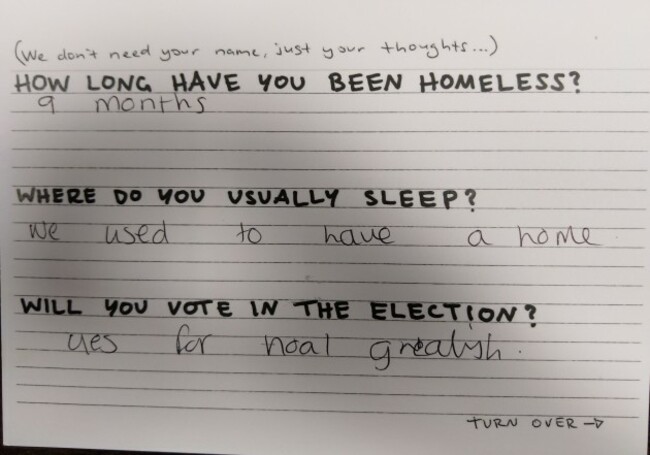 (We don't need your name, just your thoughts...)
HOW LONG HAVE YOU BEEN HOMELESS?
9 months
WHERE DO YOU USUALLY SLEEP?
We used to have a home
WILL YOU VOTE IN THE ELECTION?
yes for noal grealish.
TURN OVER →